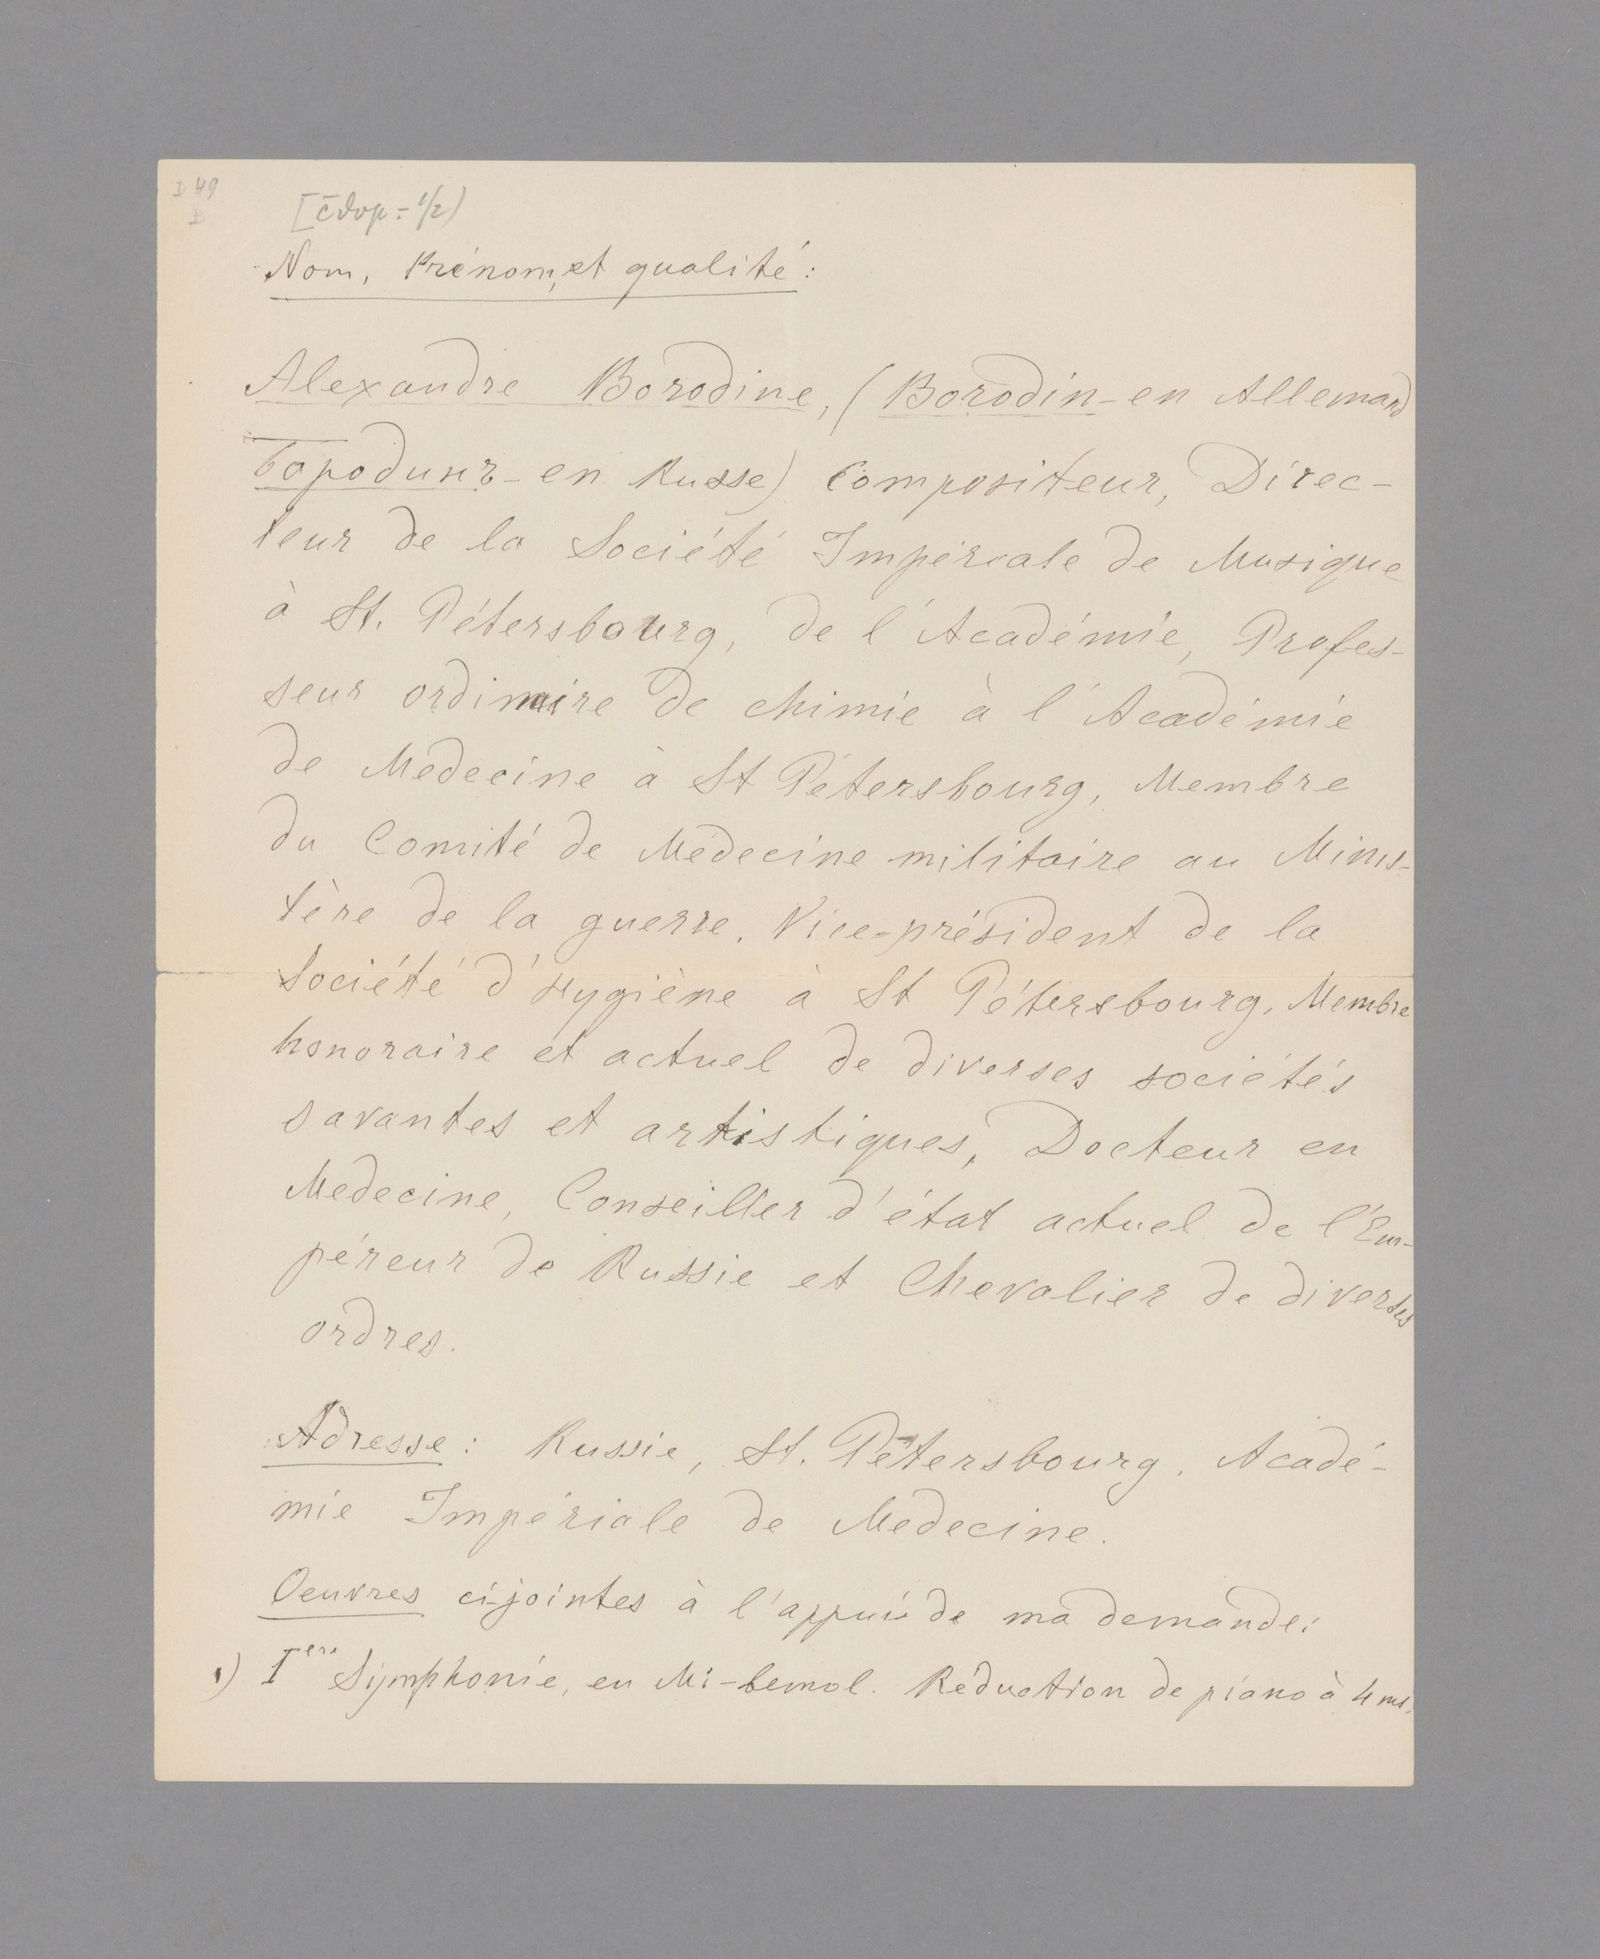 D 49
Nom, Prénom, et qualité:
Alexandre Borodine, (Borodin - en Allemand
Бородинъ - en Russe) Compositeur, Direc-
teur de la Société Impériale de Musique
à St. Pétersbourg, de l'Académie, Profes-
seur ordinaire de chimie à l'Académie
de Médecine à St Pétersbourg, Membre
du Comité de Médecine militaire au Minis-
tère de la guerre, Vice-président de la
Société d'Hygiène à St Pétersbourg, Membre
honoraire et actuel de diverses sociétés
savantes et artistiques, Docteur en
Medecine, Conseiller d'état actuel de l'Em-
péreur de Russie et Chevalier de diverses
ordres.
Adresse: Russie, St. Pétersbourg, Acadé-
mie Impériale de Medecine.
Oeuvres ci-jointes à l'appui de ma demande:
1) Iere Symphonie, en Mi-bemol. Réduction de piano à 4 ms.